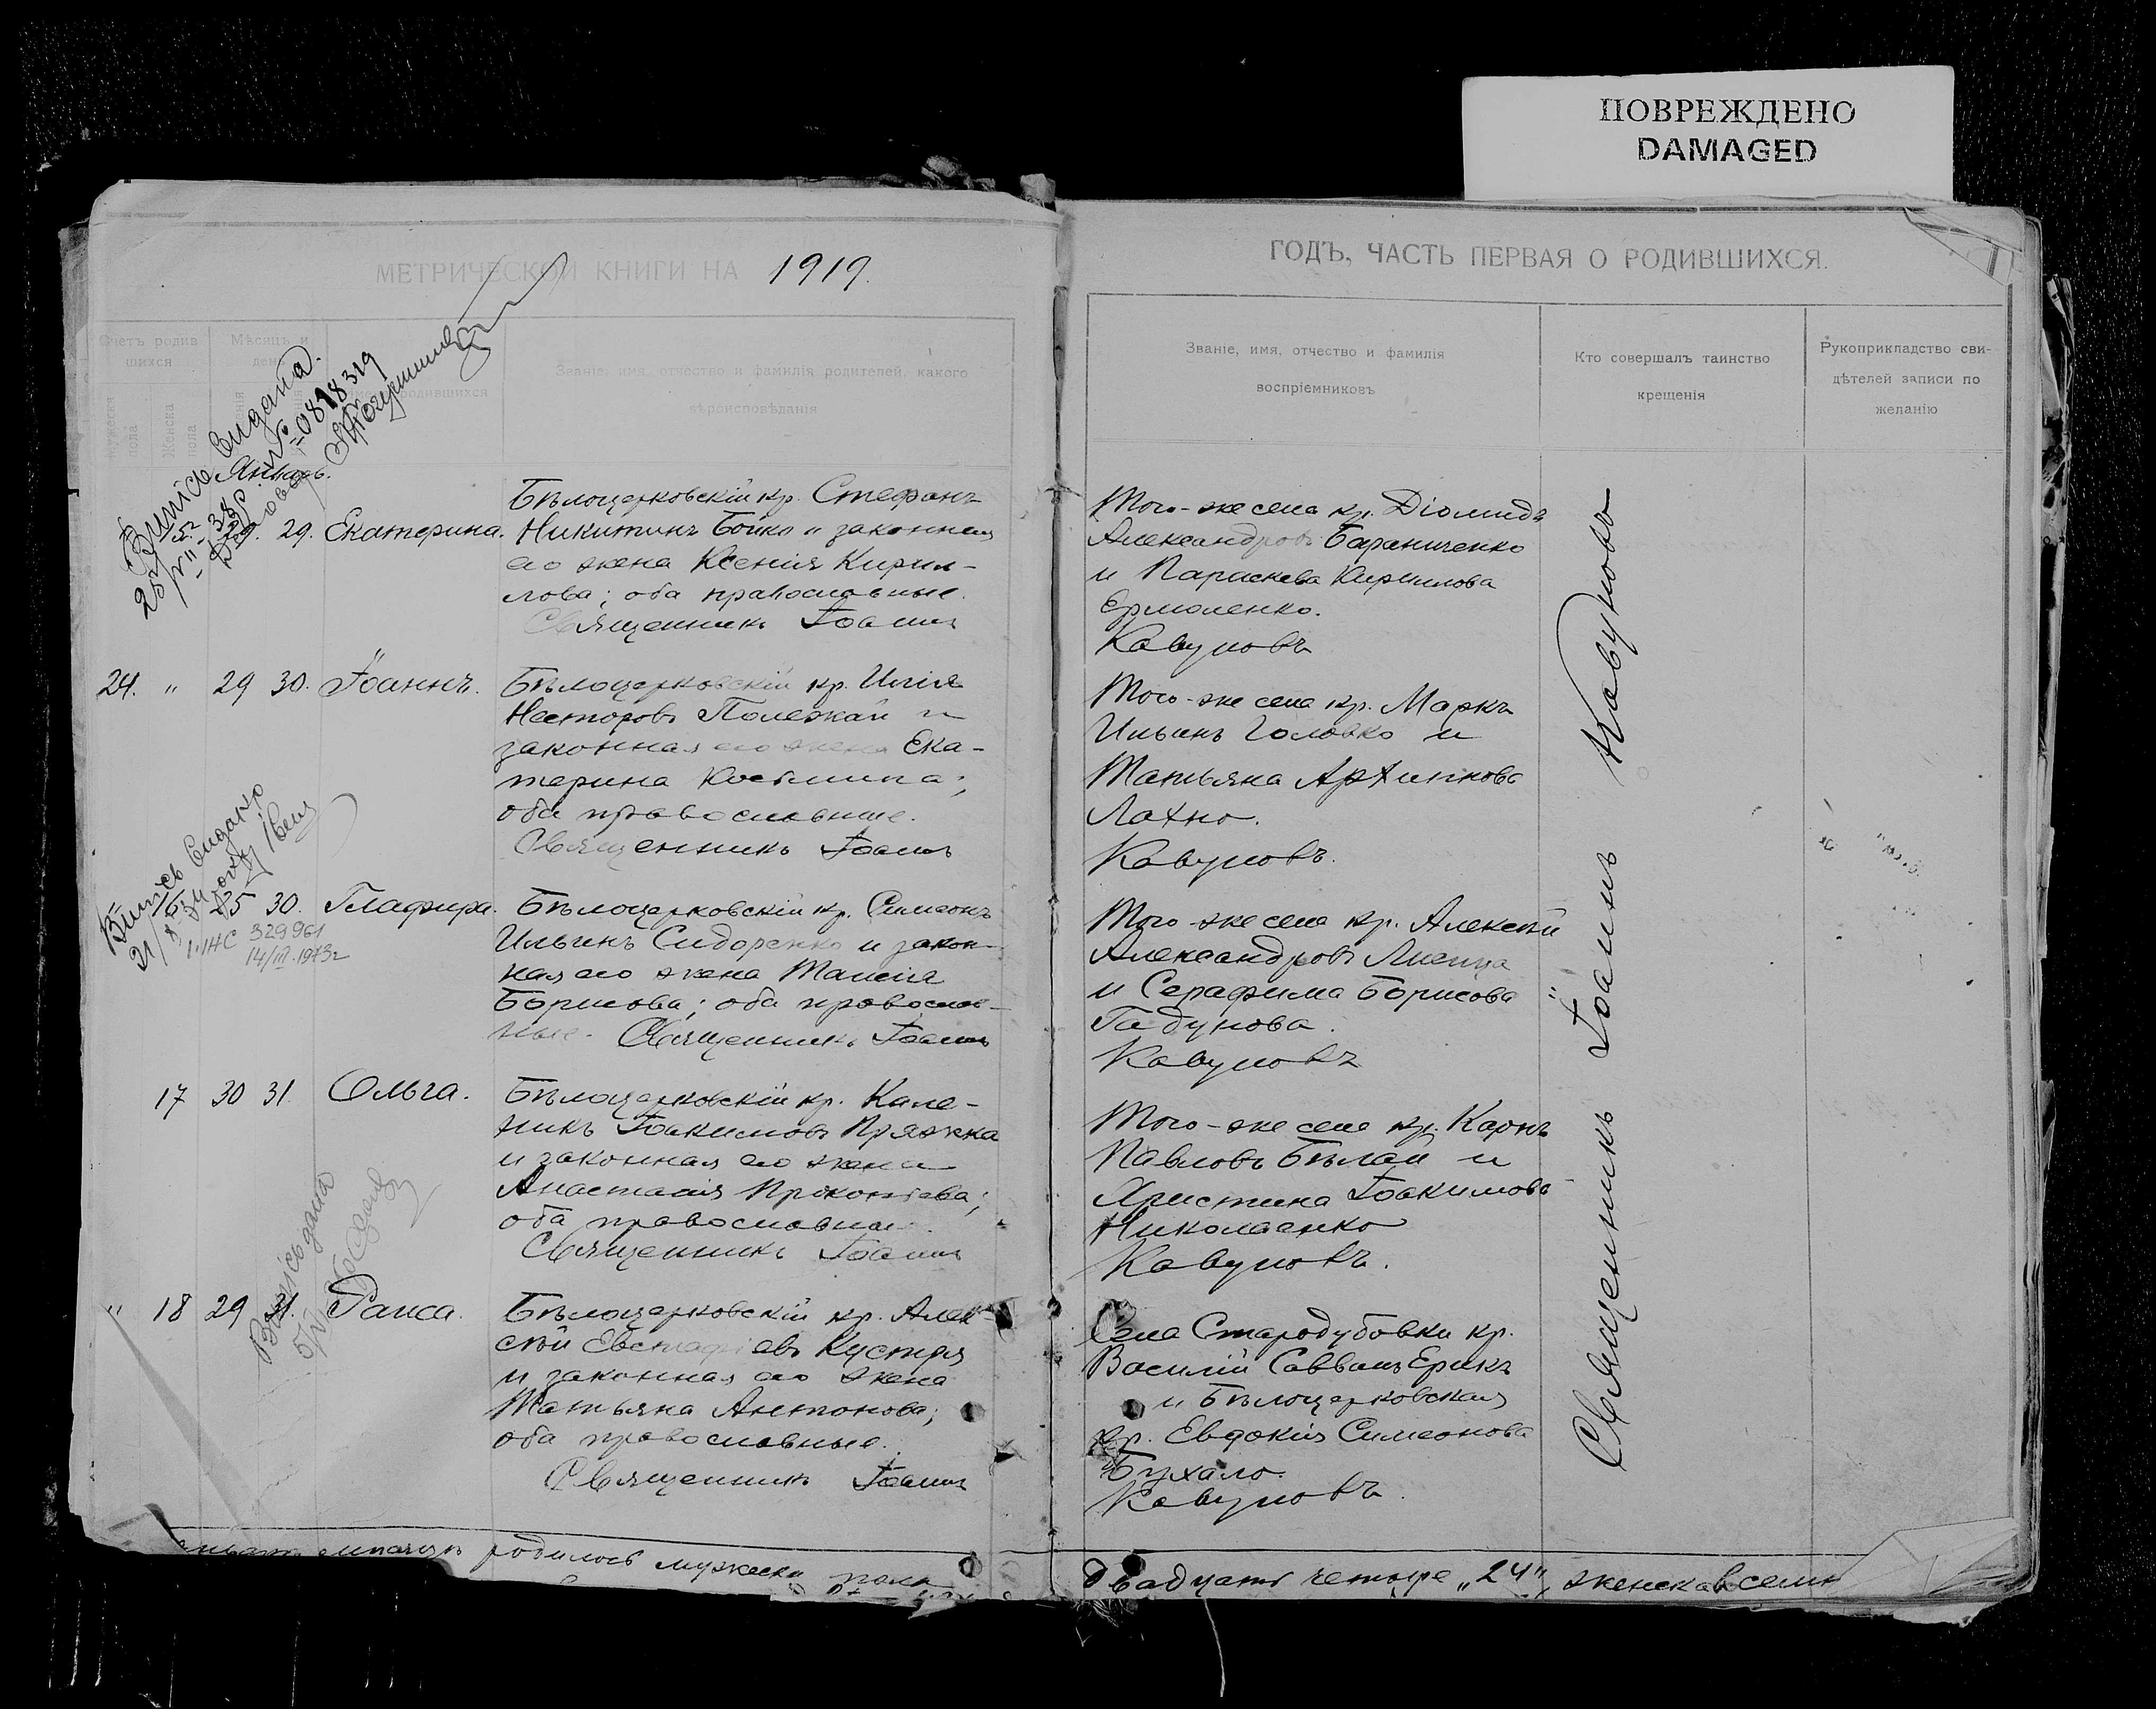 ПОВРЕЖДЕНО
DAMAGED
МЕТРИЧЕСКОЙ КНИГИ НА 1919.
ГОДЪ, ЧАСТЬ ПЕРВАЯ О РОДИВШИХСЯ.
Счетъ родив
шихся
Мѣсяцъ и
день
родившихся
Женска
пола
Званіе, имя, отчество и фамилія родителей, какого
вѣроисповѣданія
Званіе, имя, отчество и фамилія
воспріемниковъ
Кто совершалъ таинство
крещенія
Рукоприкладство сви-
дѣтелей записи по
желанію
Январь.
29. Екатерина.
Бѣлоцерковскій кр. Стефанъ
Никитинъ Бойко и законная
его жена Ксенія Кирил-
лова; оба православные.
Священникъ Іоаннъ
Того-же села кр. Діомидъ
Александровъ Бараниченко
и Параскева Кириллова
Ермоленко.
Кавуновъ
24. " 29 30. Іоаннъ.
Бѣлоцерковскій кр. Илія
Несторовъ Полежай и
законная его жена Ека-
терина Косьмина;
оба православные.
Священникъ Іоаннъ
Того-же села кр. Маркъ
Ильинъ Головко и
Татьяна Архиппова
Лахно.
Кавуновъ.
30. Глафира.
Бѣлоцерковскій кр. Симеонъ
Ильинъ Сидоренко и закон-
ная его жена Таисія
Борисова; оба православ-
ные. Священникъ Іоаннъ
Того-же села кр. Алексѣй
Александровъ Лисица
и Серафима Борисова
Гадунова.
Кавуновъ
329961
14/III.1973г
17 30 31. Ольга.
Бѣлоцерковскій кр. Кале-
никъ Іоакимовъ Пряжка
и законная его жена
Анастасія Прокопіева;
оба православные.
Священникъ Іоаннъ
Того-же села кр. Карпъ
Павловъ Бѣлай и
Христина Іоакимова
Николаенко
Кавуновъ.
" 18 29 31. Раиса.
Бѣлоцерковскій кр. Алек-
сѣй Евстафіевъ Кустря
и законная его жена
Татьяна Антонова;
оба православные.
Священникъ Іоаннъ
Села Стародубовки кр.
Василій Саввинъ Ерикъ
и Бѣлоцерковская
кр. Евдокія Симеонова
Бухало.
Кавуновъ.
Священникъ Іоаннъ Кавуновъ
родилось мужеска пола
двадцать четыре „24", женска